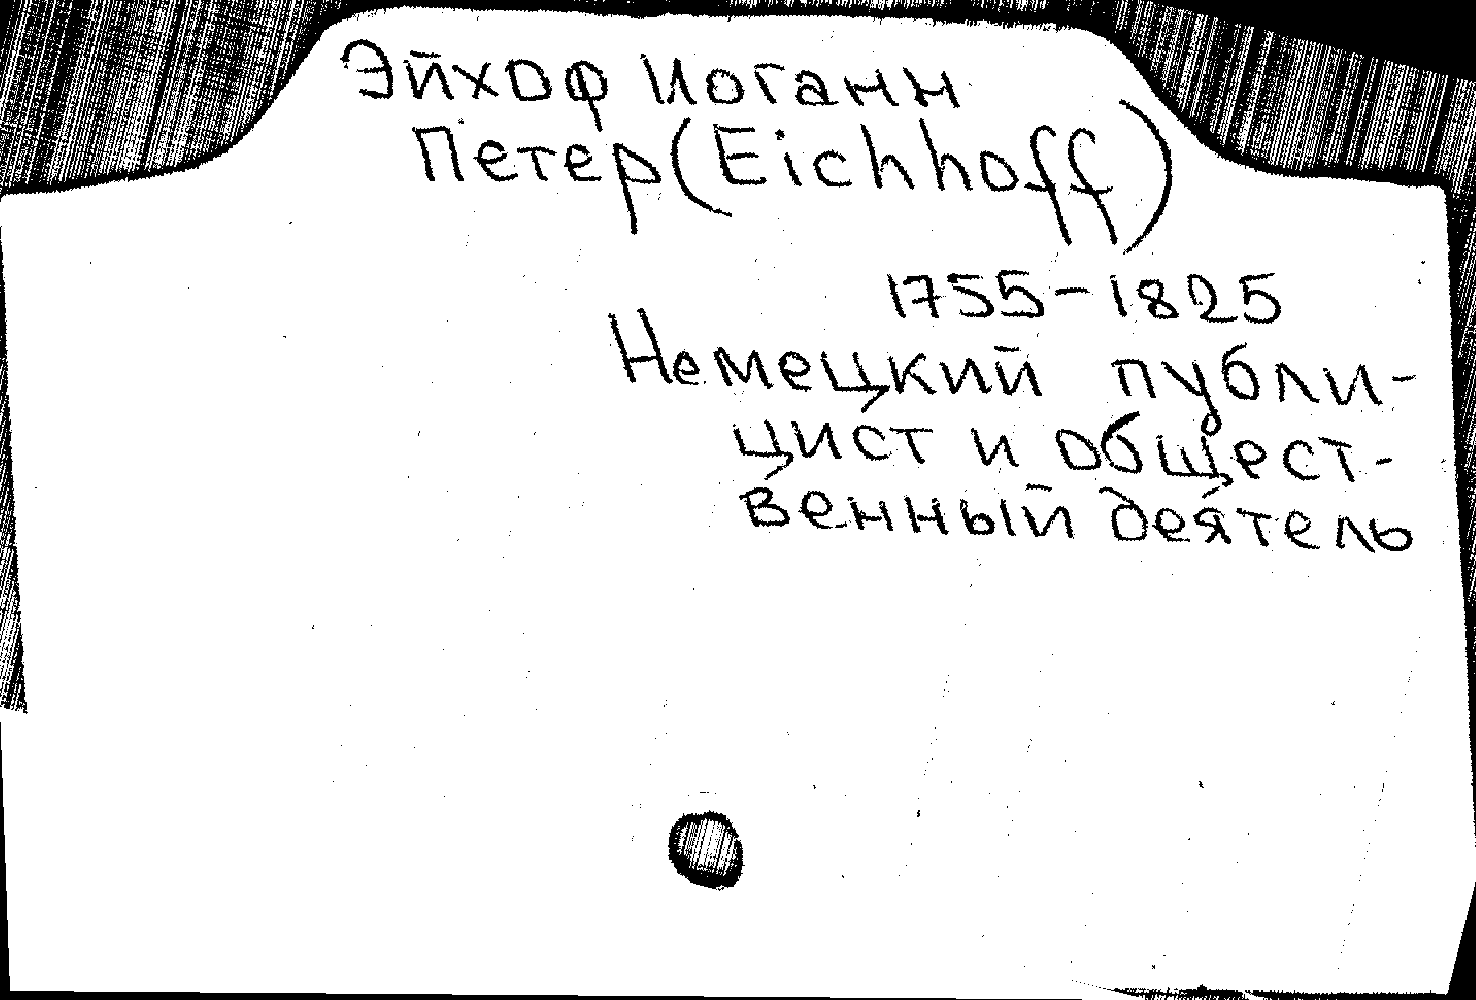 Эйхоф Иоганн
Петер (Eichhoff)
1755-1825
Немецкий публи-
цист и общест-
венный деятель